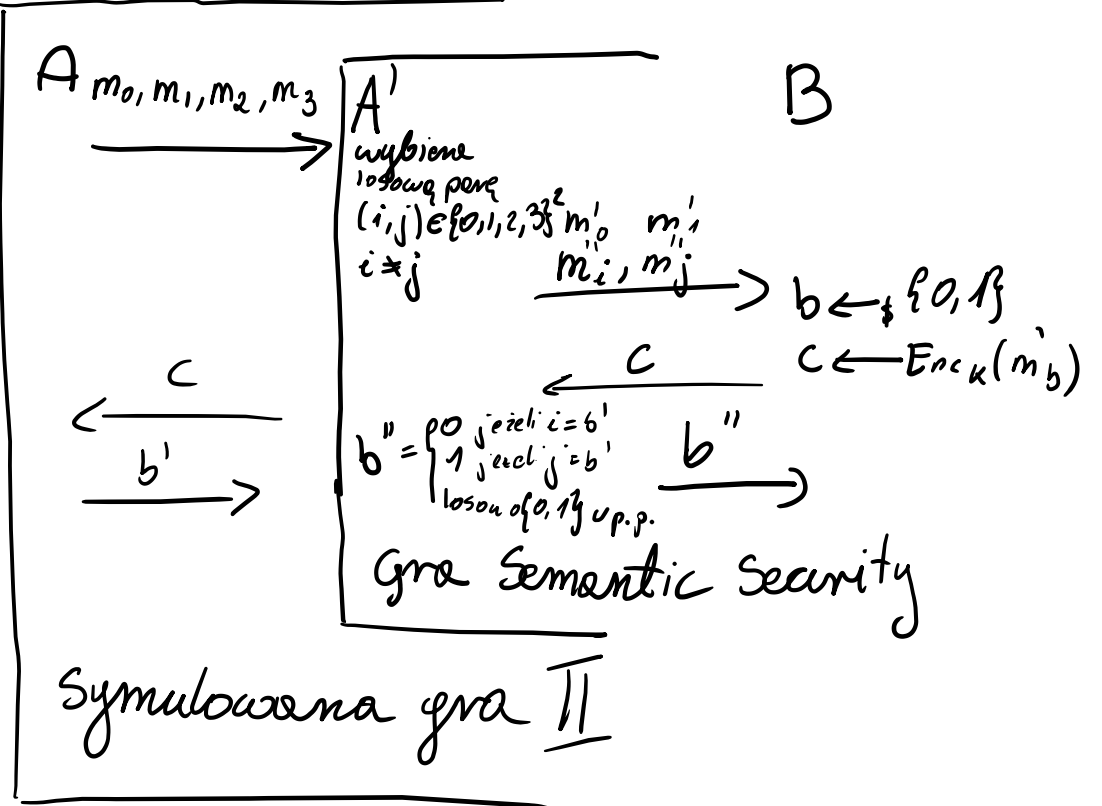 A m₀, m₁, m₂, m₃
A'
B
wybiera
losową parę
(i,j)∈{0,1,2,3}² m'₀ m'₁
i≠j
m''ᵢ, m''ⱼ
b ←$ {0,1}
c ← Encₖ(m'b)
c
c
b'
b'' = {0 jeżeli i=b'
1 jeżeli j=b'
losow o {0,1} w p.p.
b''
Gra Semantic Security
Symulowana gra II